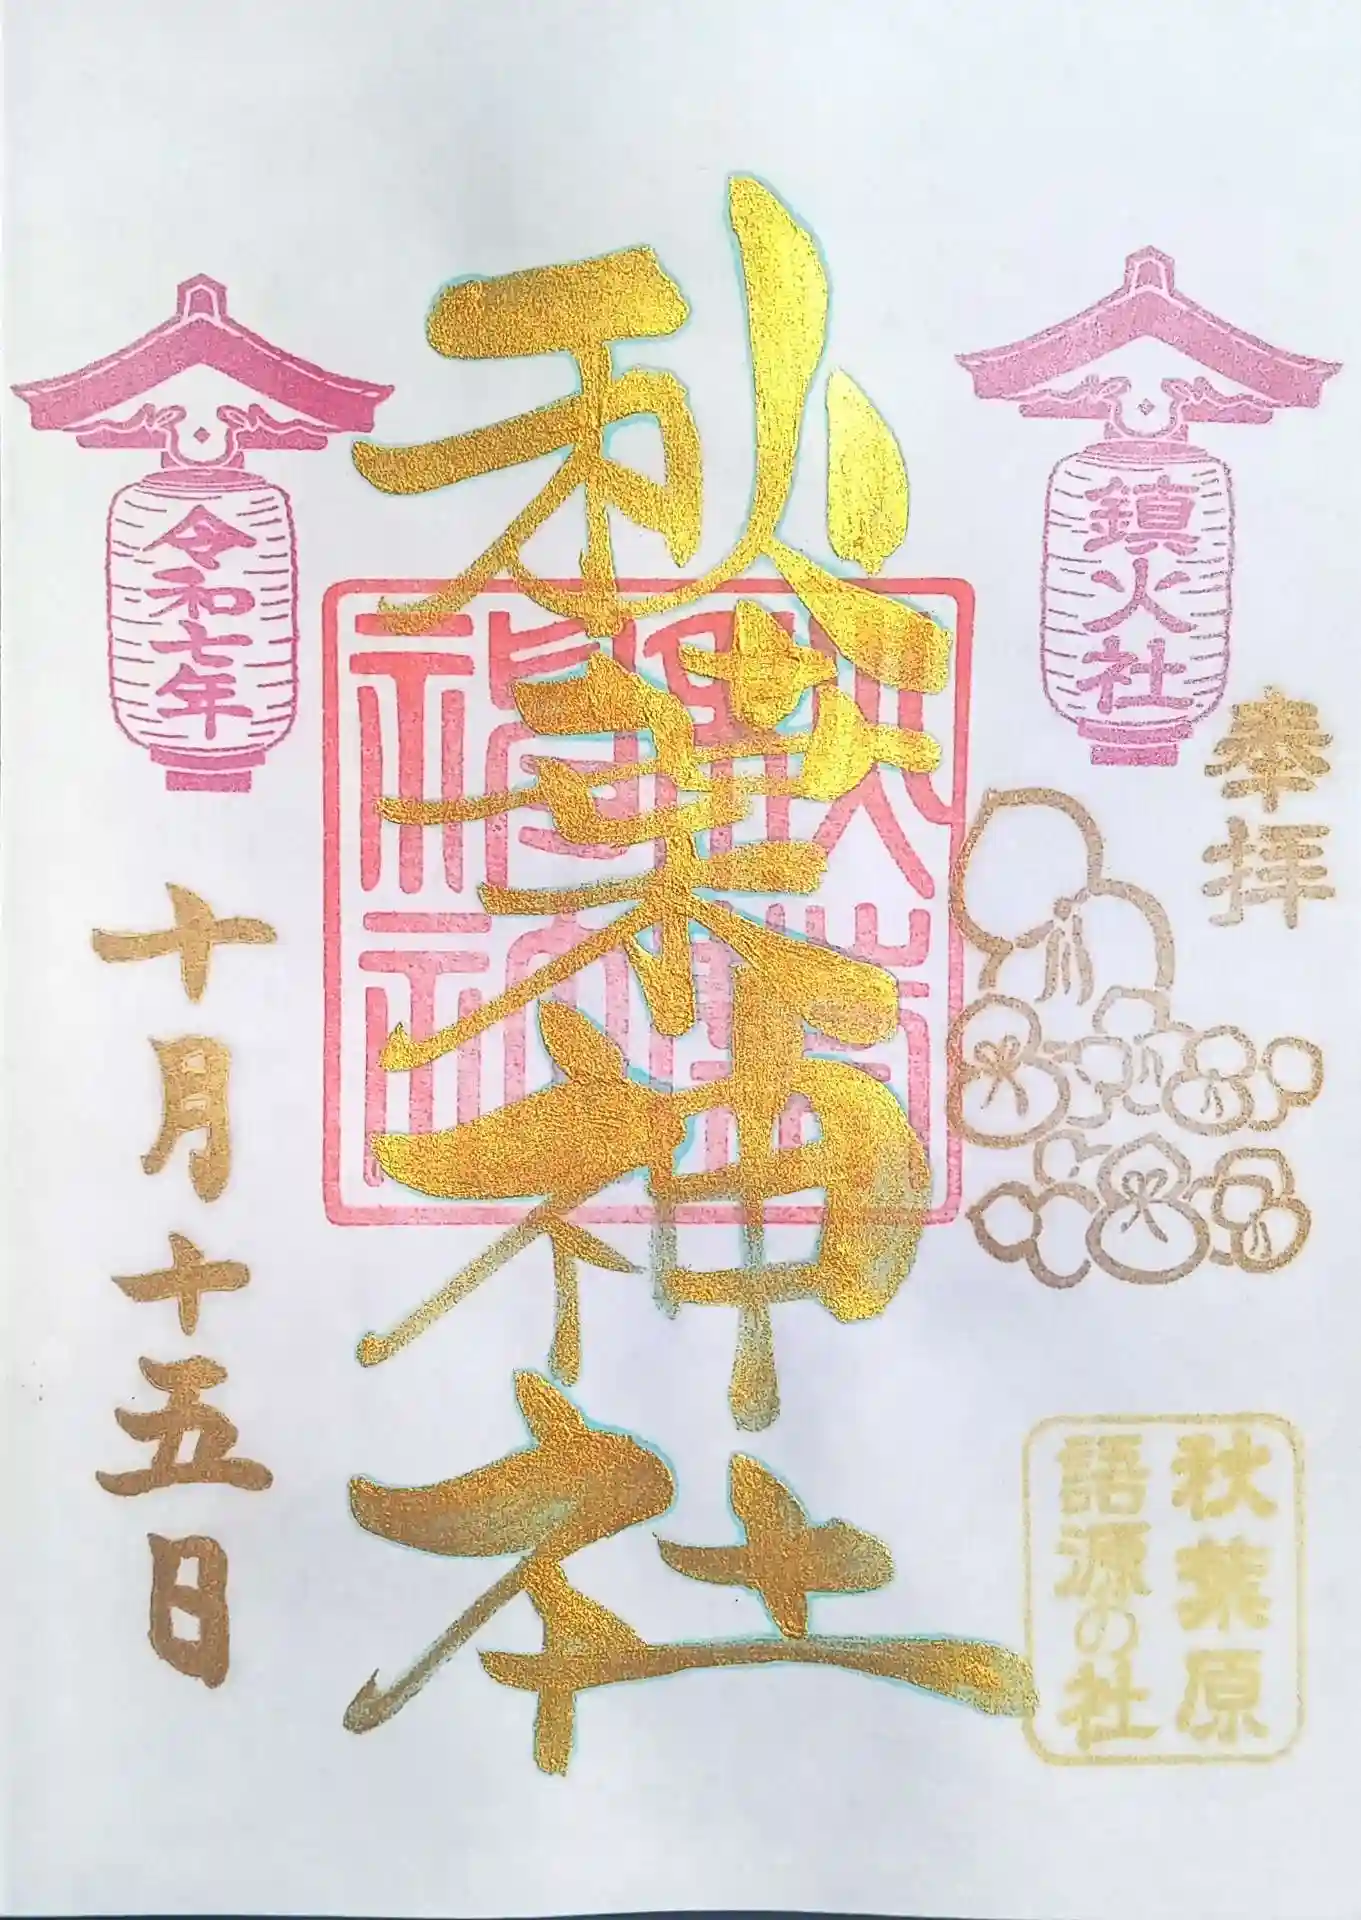 鎮火社
奉拝
秋葉原
語源の社
秋葉神社
令和七年
十月十五日